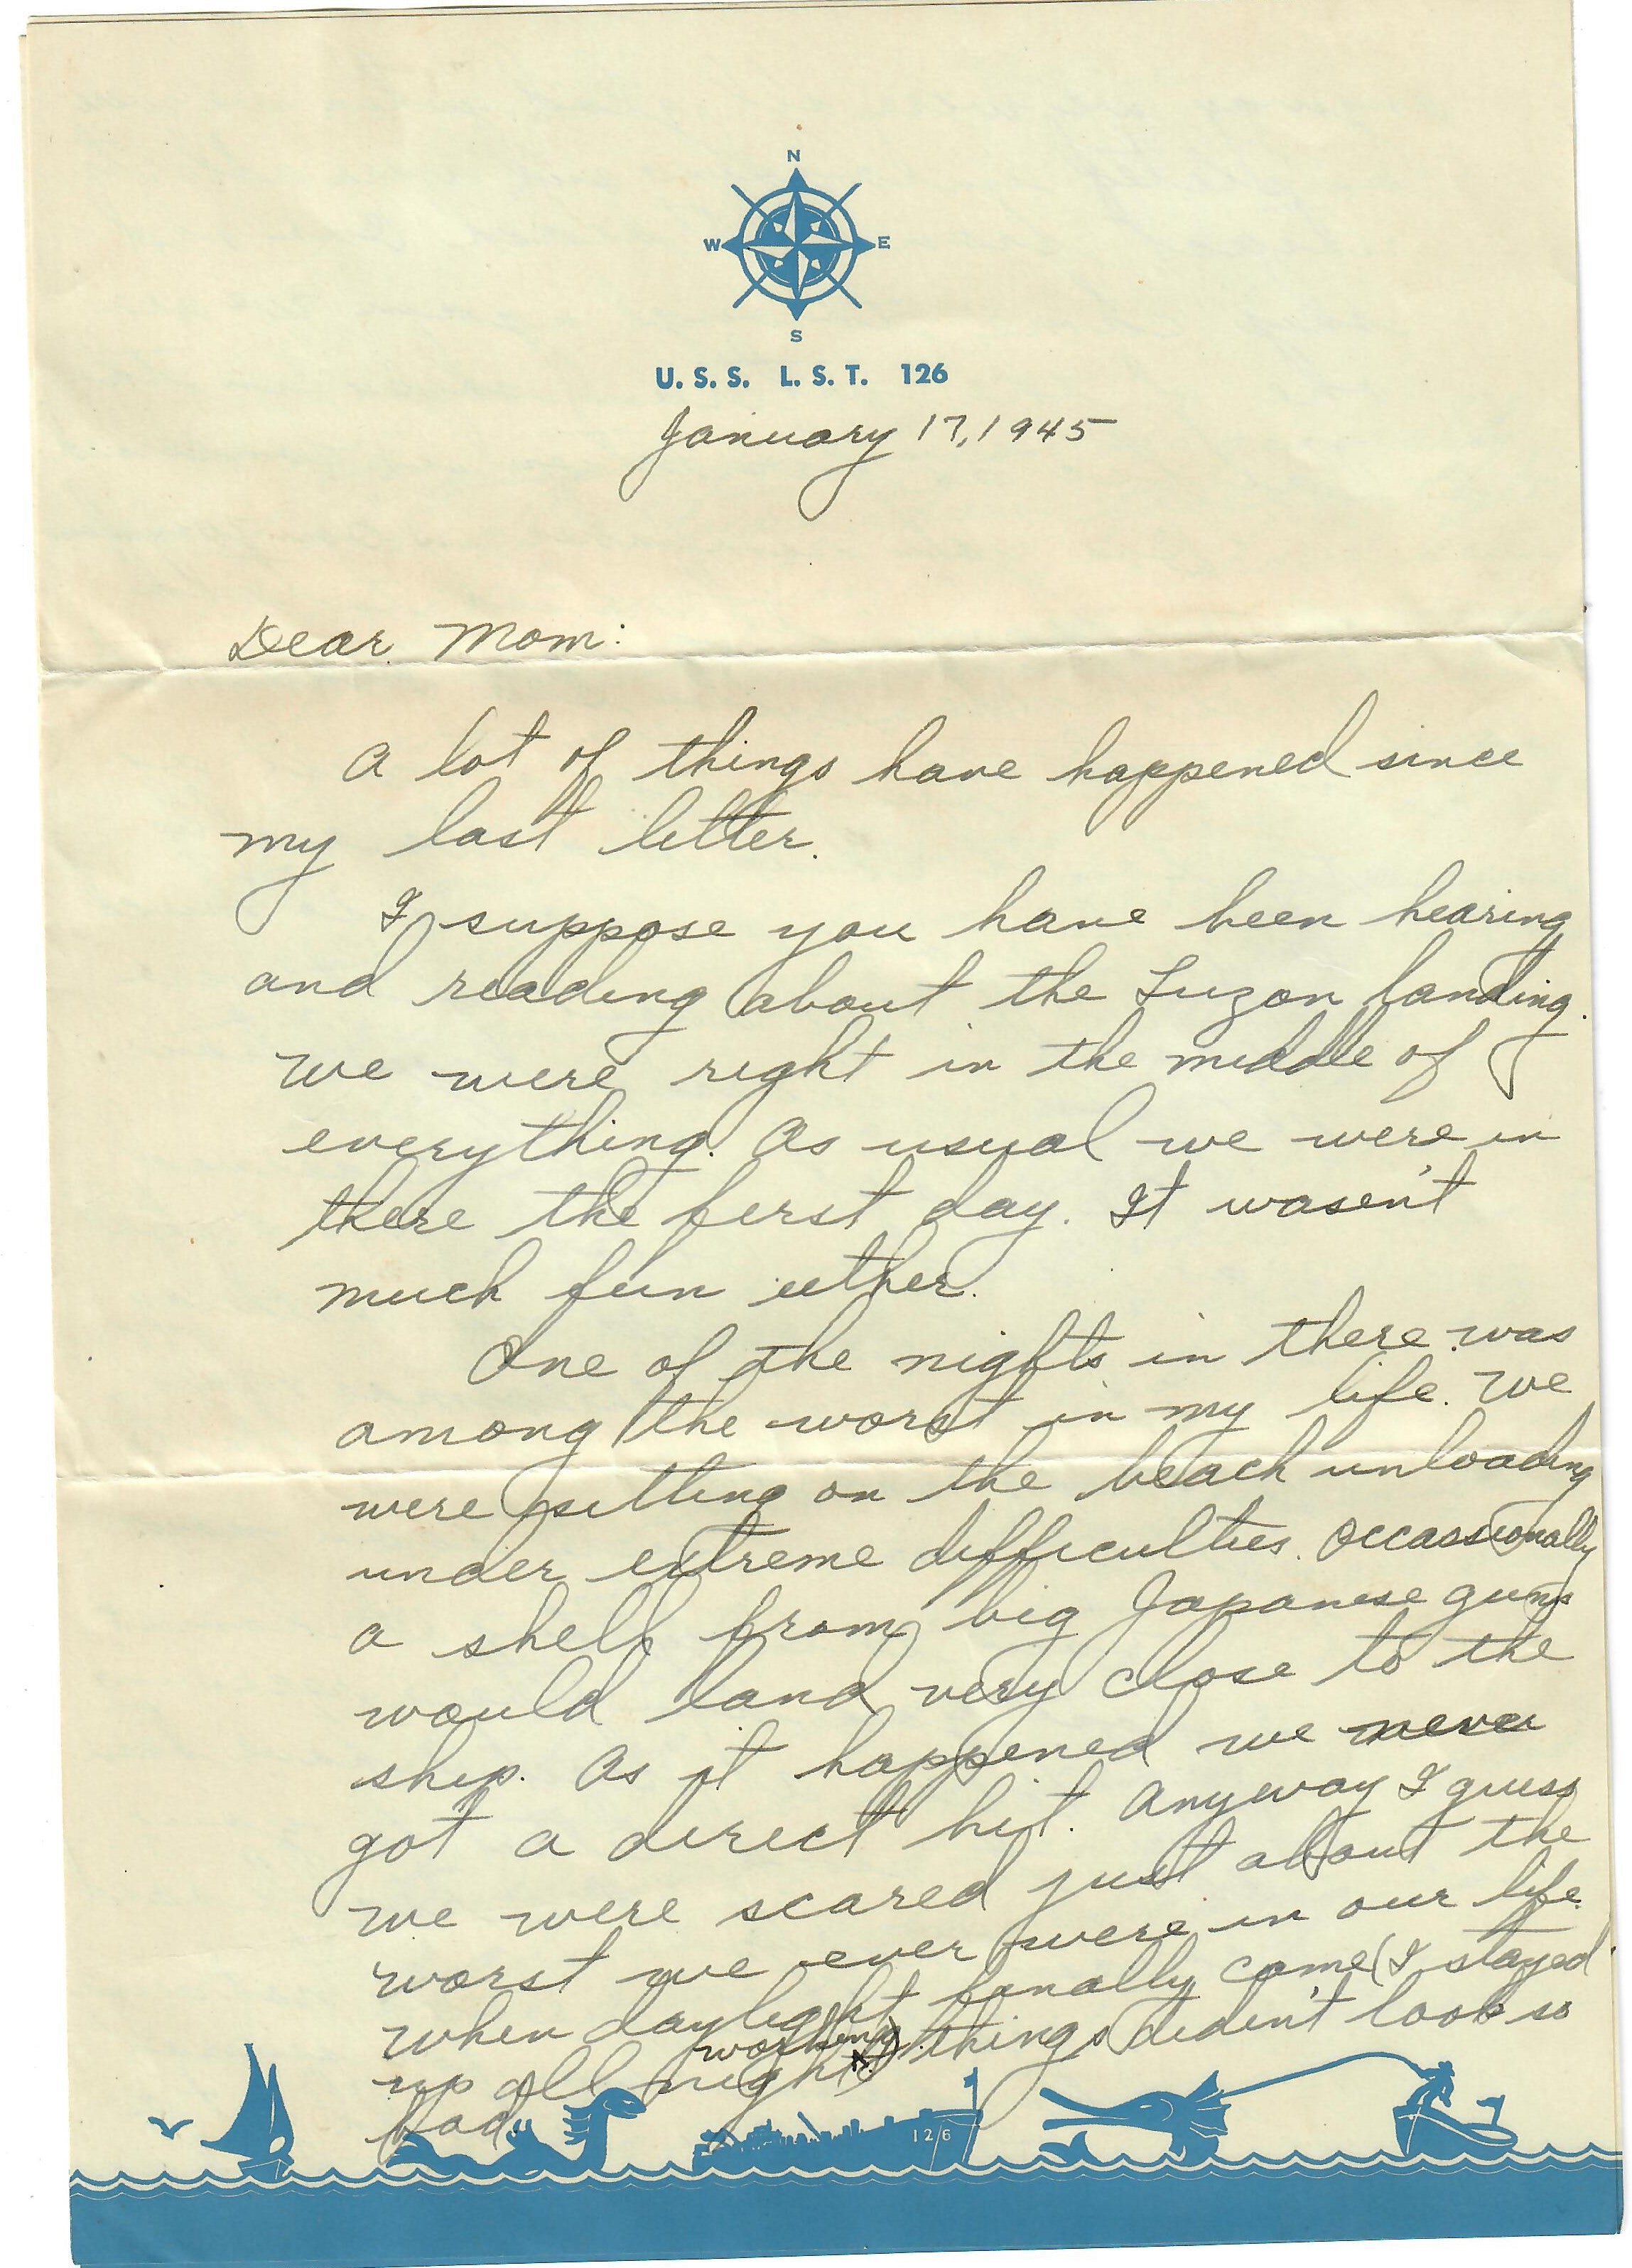 N
W E
S
U. S. S. L. S. T. 126
January 17, 1945
Dear Mom:
A lot of things have happened since
my last letter.
I suppose you have been hearing
and reading about the Luzon landing.
We were right in the middle of
everything. As usual we were in
there the first day. It wasen't
much fun either.
One of the nights in there was
among the worst in my life. We
were sitting on the beach unloading
under extreme difficulties. Occassionally
a shell from big Japanese guns
would land very close to the
ship. As it happened we never
got a direct hit. Anyway I guess
we were scared just about the
worst we ever were in our life.
When daylight finally came (I stayed
up all night working) things diden't look so
bad.
126